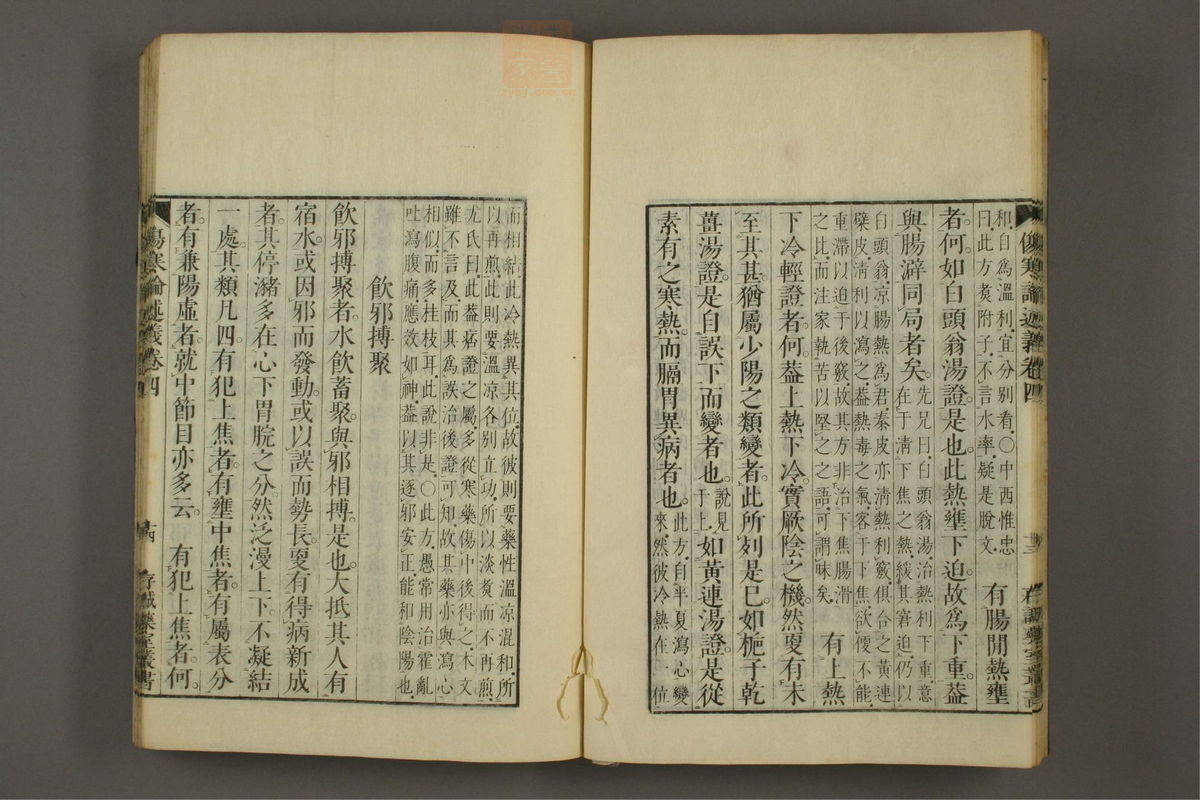 和白爲溫利宜分別看○中西惟忠
曰此方煑附子不言水率疑是脫文
有腸閒熱壅
者何如白頭翁湯證是也此熱壅下迫故爲下重蓋
與腸澼同局者矣
先兄曰白頭翁湯治熱利下重意
在于淸下焦之熱緩其窘迫仍以
白頭翁凉腸熱爲君秦皮亦淸熱利竅俱合之黃連
檗皮淸利以瀉之蓋熱毒之氣客于下焦欲便不能
重滯以迫于後竅故其方非治下焦腸滑
之比而注家執苦以堅之之語可謂昧矣
有上熱
下冷輕證者何蓋上熱下冷實厥陰之機然更有未
至其甚猶屬少陽之類變者此所列是巳如梔子乾
薑湯證是自誤下而變者也
說見
于上
如黃連湯證是從
素有之寒熱而膈胃異病者也
此方自半夏瀉心變
來然彼冷熱在一位
傷寒論述義卷四
十三
存誠藥室叢書
而相結此冷熱異其位故彼則要藥性溫凉混和所
以再煎此則要溫凉各別立功所以淡煑而不再煎
尤氏曰此蓋痞證之屬多從寒藥傷中後得之本文
雖不言及而其爲誤治後證可知故其藥亦與瀉心
相似而多桂枝耳此說非是○此方愚常用治霍亂
吐瀉腹痛應效如神蓋以其逐邪安正能和陰陽也
飮邪搏聚
飮邪搏聚者水飮蓄聚與邪相搏是也大抵其人有
宿水或因邪而發動或以誤而勢長更有得病新成
者其停瀦多在心下胃脘之分然泛漫上下不凝結
一處其類凡四有犯上焦者有壅中焦者有屬表分
者有兼陽虛者就中節目亦多云　有犯上焦者何
傷寒論述義卷四
十四
存誠藥室叢書